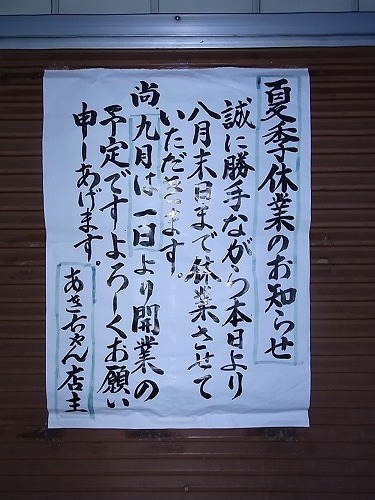 夏季休業のお知らせ
誠に勝手ながら本日より
八月末日まで休業させて
いただきます。
尚、九月は一日より開業の
予定ですよろしくお願い
申しあげます。
あきちゃん店主